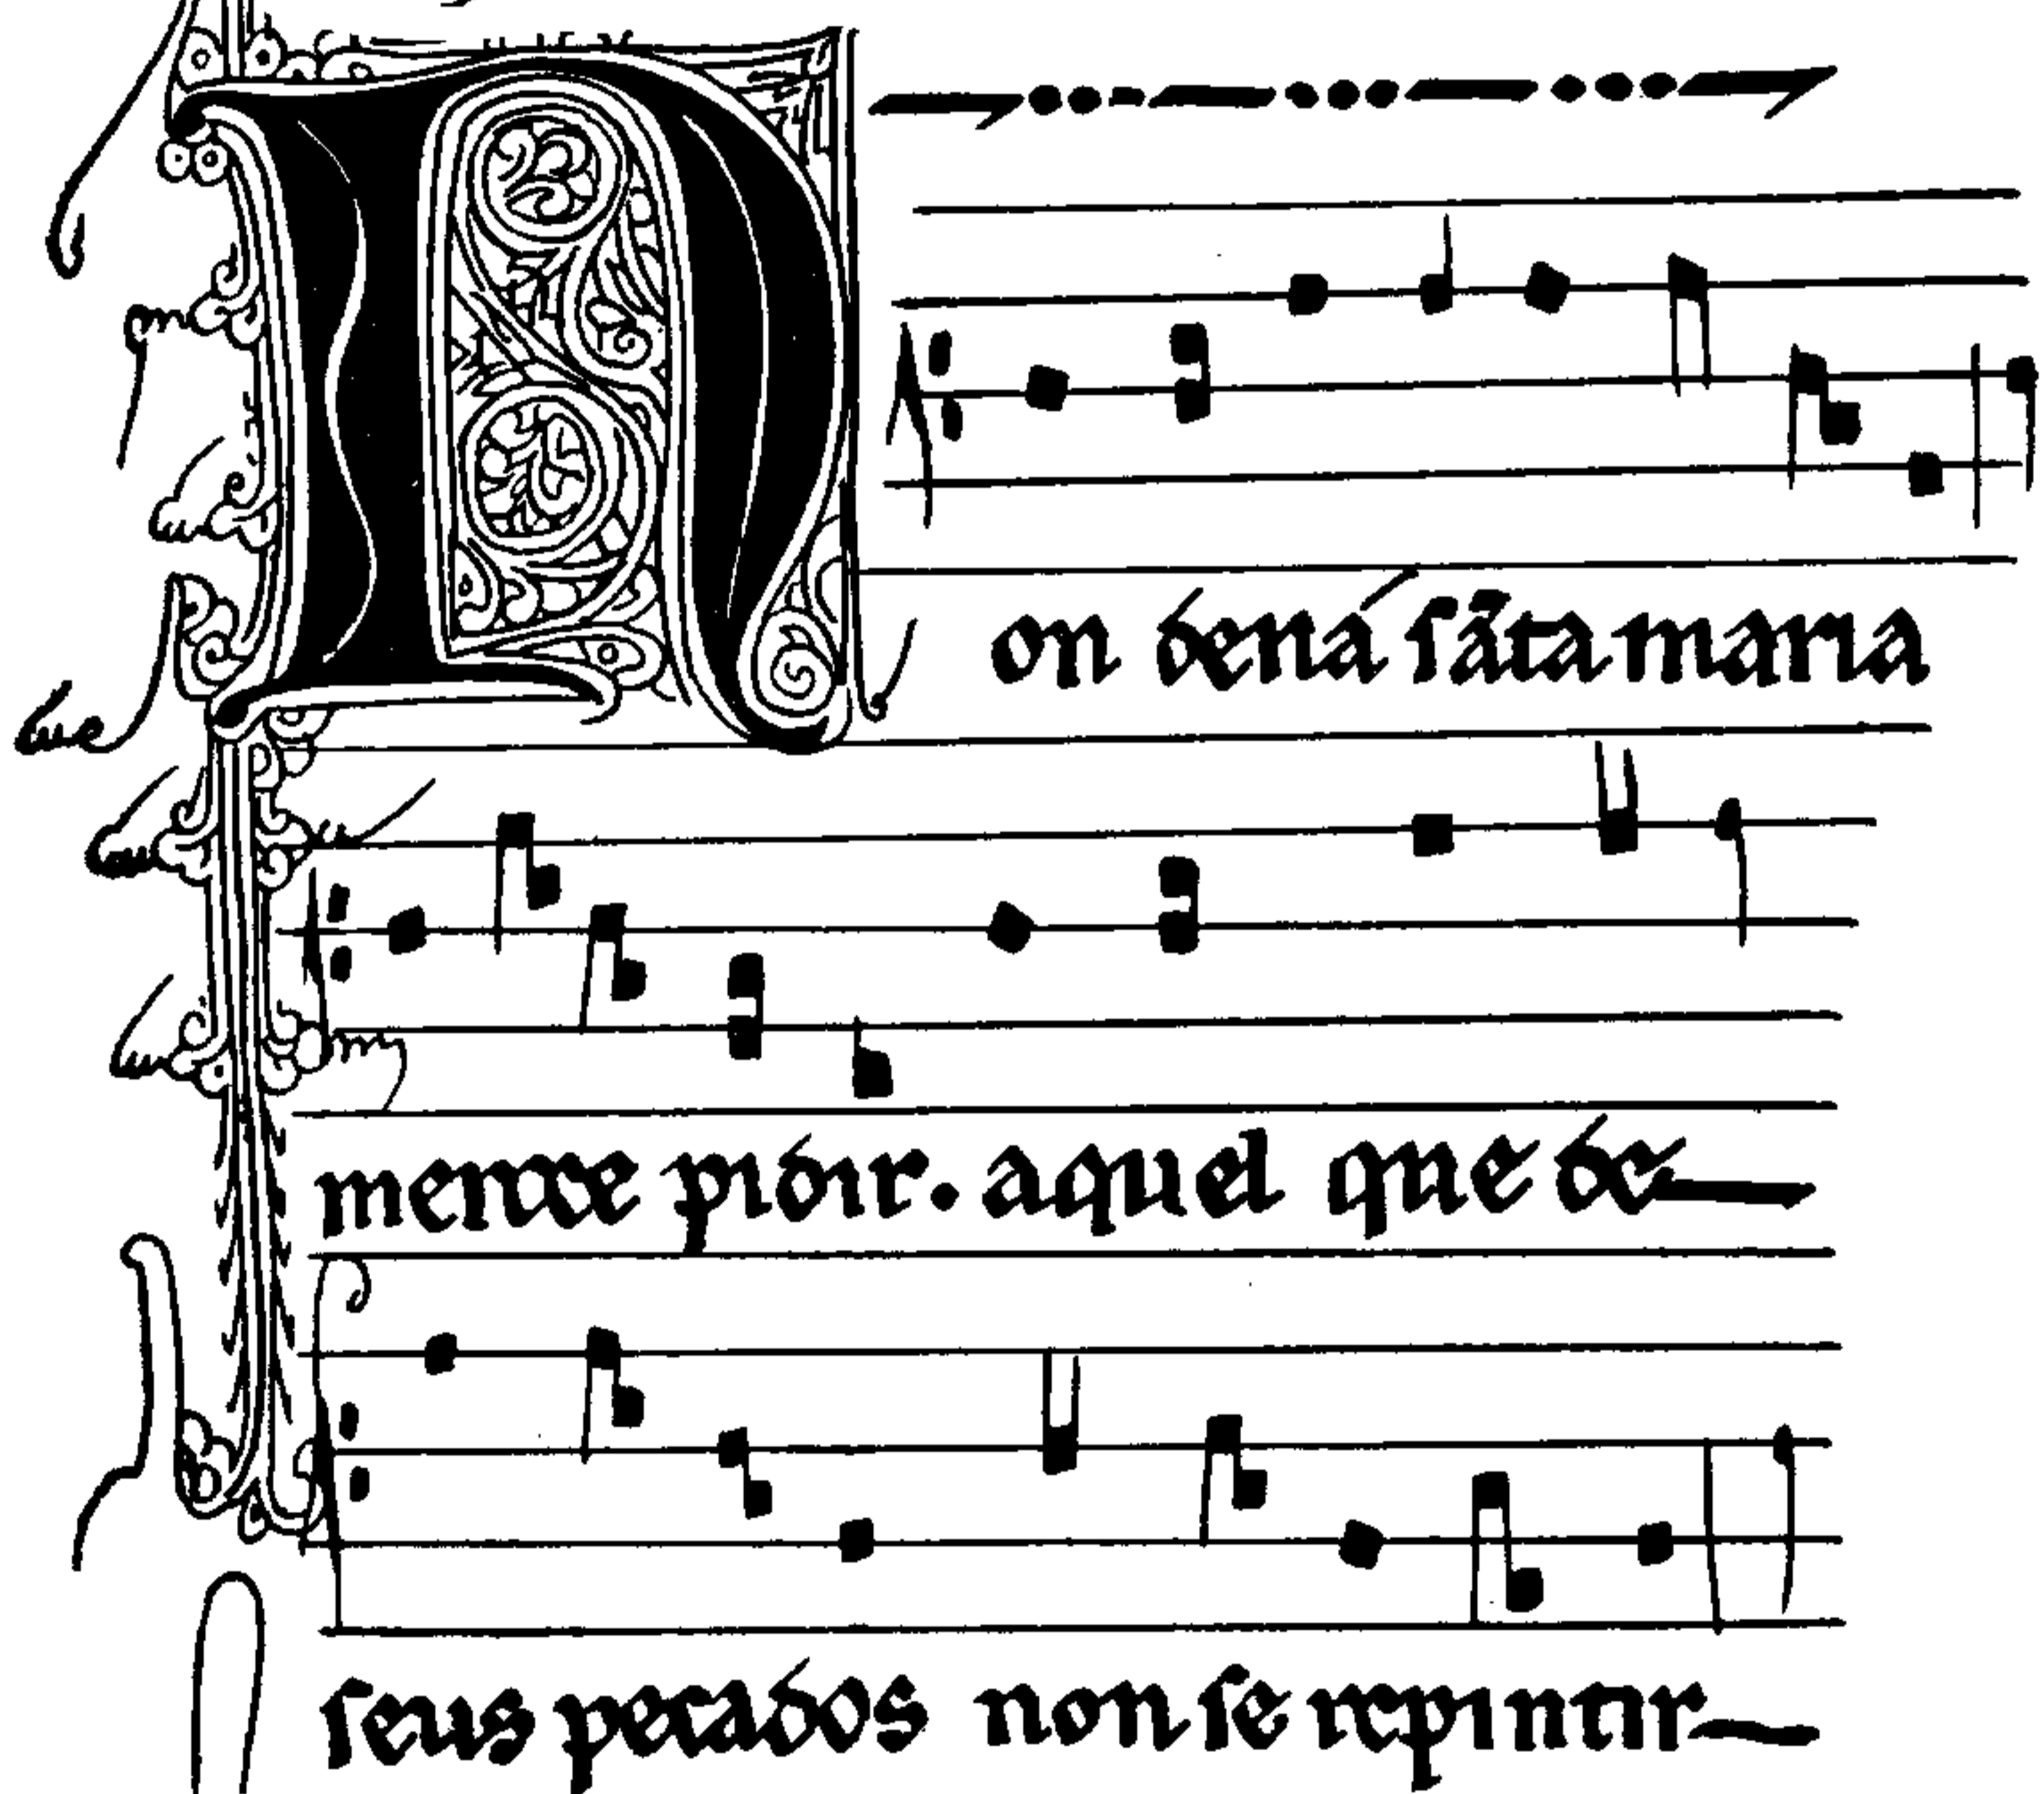 Non deuẽ a sãta maria
merçee pidir. aquel que de
seus pecados non se repintir